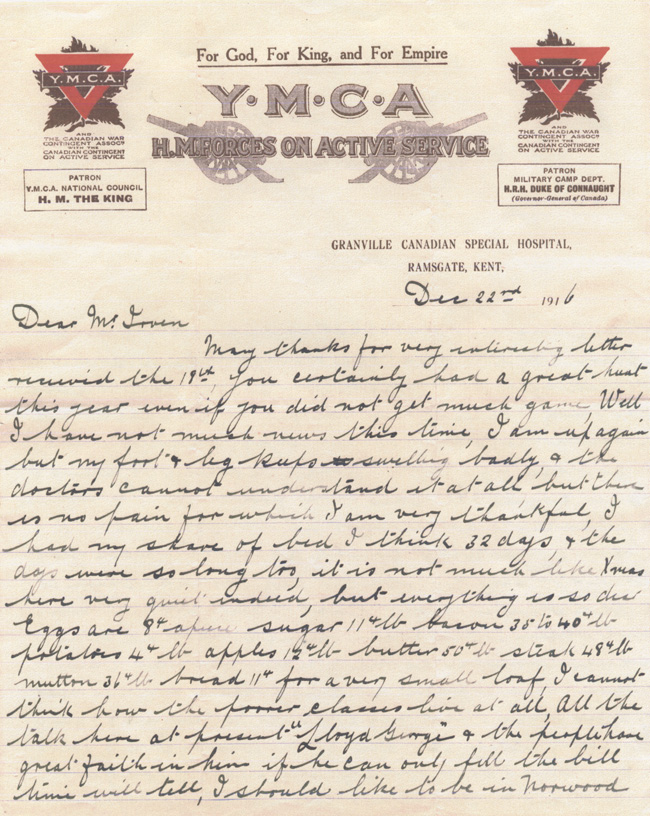 For God, For King, and For Empire
Y.M.C.A.
Y·M·C·A
Y.M.C.A.
AND
THE CANADIAN WAR
CONTINGENT ASSOCN
WITH THE
CANADIAN CONTINGENT
ON ACTIVE SERVICE
H.M. FORCES ON ACTIVE SERVICE
AND
THE CANADIAN WAR
CONTINGENT ASSOCN
WITH THE
CANADIAN CONTINGENT
ON ACTIVE SERVICE
PATRON
Y.M.C.A. NATIONAL COUNCIL
H. M. THE KING
PATRON
MILITARY CAMP DEPT.
H.R.H. DUKE OF CONNAUGHT
(Governor-General of Canada)
GRANVILLE CANADIAN SPECIAL HOSPITAL,
RAMSGATE, KENT,
Dec 22nd 1916
Dear Mr Irven
Many thanks for very interesting letter
received the 19th, you certainly had a great hunt
this year even if you did not get much game, Well
I have not much news this time, I am up again
but my foot & leg keeps swelling badly, & the
doctors cannot understand it at all but there
is no pain for which I am very thankful, I
had my share of bed I think 32 days, & the
days were so long too, it is not much like Xmas
here very quiet indeed, but everything is so dear
Eggs are 8d apiece sugar 11d lb bacon 35 to 40d lb
potatoes 4d lb apples 12d lb butter 50d lb steak 48d lb
mutton 36d lb bread 11d for a very small loaf, I cannot
think how the poorer classes live at all, All the
talk here at present "Lloyd George" & the people have
great faith in him if he can only fill the bill
time will tell, I should like to be in Norwood